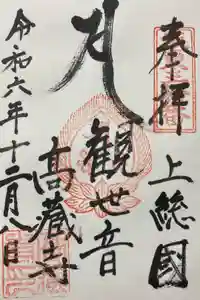 奉拝
上総國
観世音
髙藏寺
令和六年十二月八日